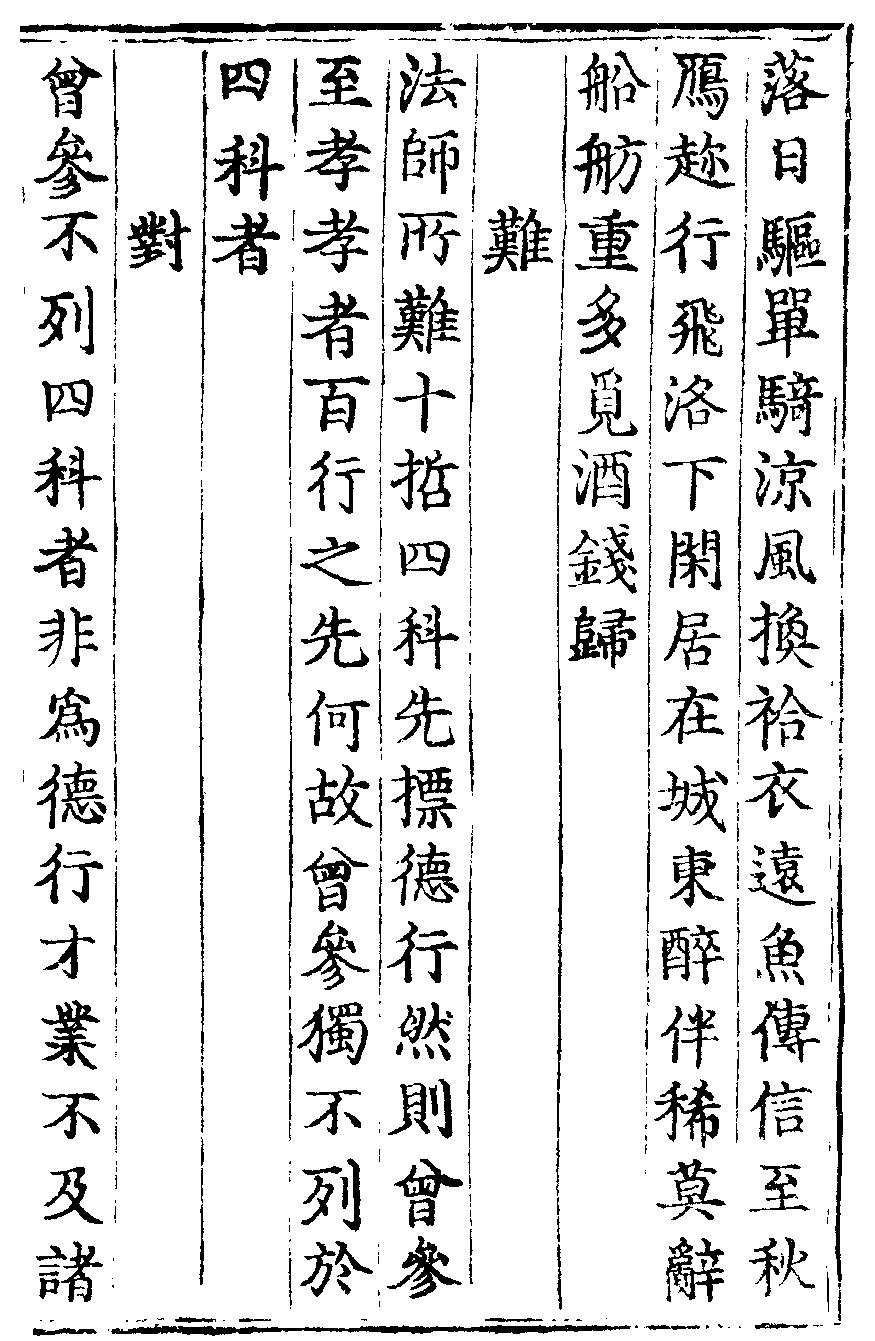 落日驅單騎涼風換袷衣遠魚傳信至秋
鴈趂行飛洛下閑居在城東醉伴稀莫辭
船舫重多覓酒錢歸
難
法師所難十哲四科先摽德行然則曾參
至孝孝者百行之先何故曾參獨不列於
四科者
對
曾參不列四科者非爲德行才業不及諸